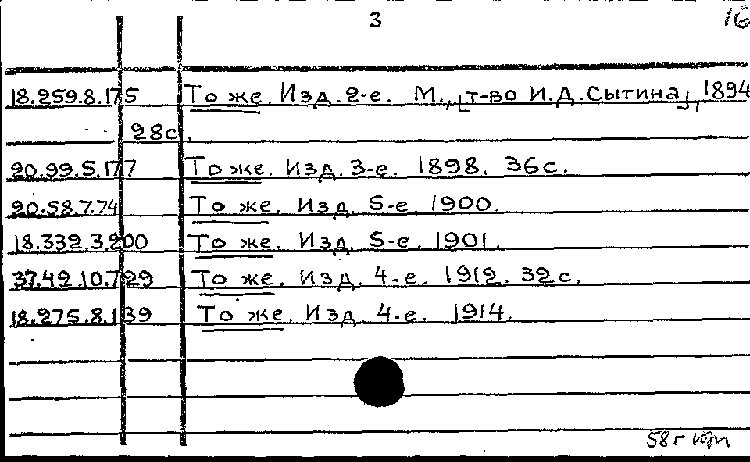 3 16
18.259.8.175 То же. Изд. 2-е. М., [т-во И.Д.Сытина], 1894
28с.
20.99.5.177 То же. Изд. 3-е. 1898. 36с.
20.58.7.74 То же. Изд. 5-е 1900.
18.339.3.200 То же. Изд. 5-е. 1901.
37.42.10.729 То же. Изд. 4-е. 1912. 32с.
18.275.8.139 То же. Изд. 4-е. 1914.
58г